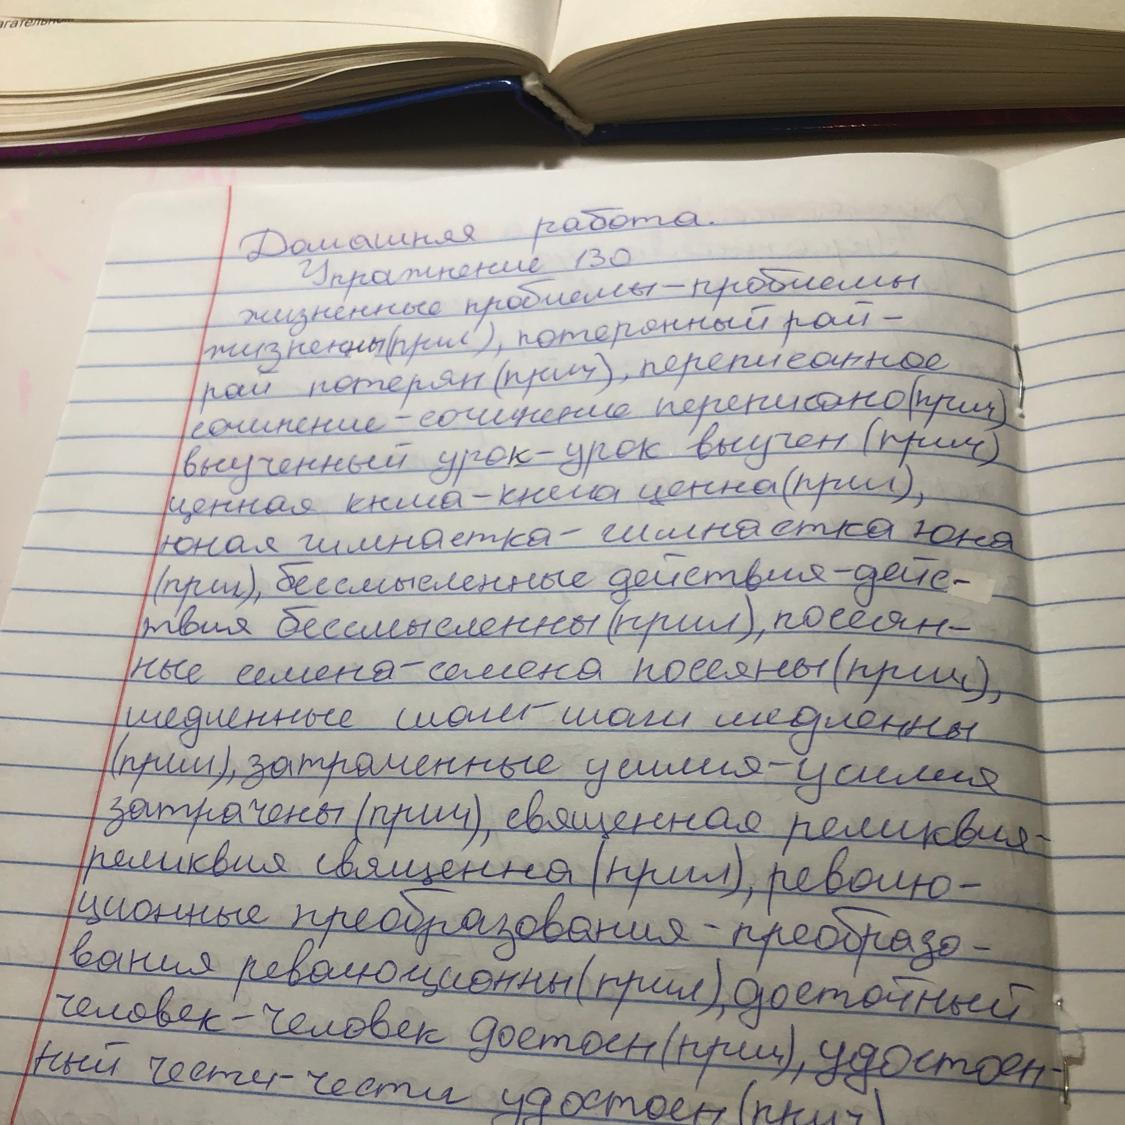 агательном
Домашняя работа.
Упражнение 130
жизненные проблемы-проблемы
жизненны(прил), потерянный рай-
рай потерян(прич), переписанное
сочинение-сочинение переписано(прич)
выученный урок-урок выучен (прич)
ценная книга-книга ценна(прил),
юная гимнастка-гимнастка юна
(прил), бессмысленные действия-дейс-
твия бессмысленны(прил), посеян-
ные семена-семена посеяны(прич),
медленные шаги-шаги медленны
(прил), затраченные усилия-усилия
затрачены(прич), священная реликвия-
реликвия священна (прил), револю-
ционные преобразования-преобразо-
вания революционны(прил), достойный
человек-человек достоен(прил), удостоен-
ный чести-чести удостоен(прич)